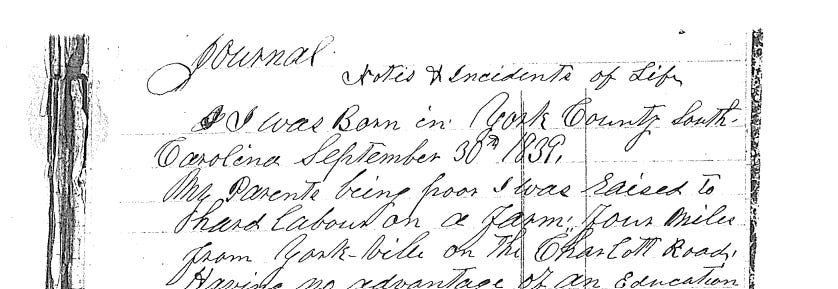 Journal
Notes & Incidents of Life
I I was Born in York County South-
Carolina September 30th 1839,
My Parents being poor I was Raised to
hard Labour on a Farm,, Four Miles
from York-Ville on the Charlott Road,
Having no advantage of an Education